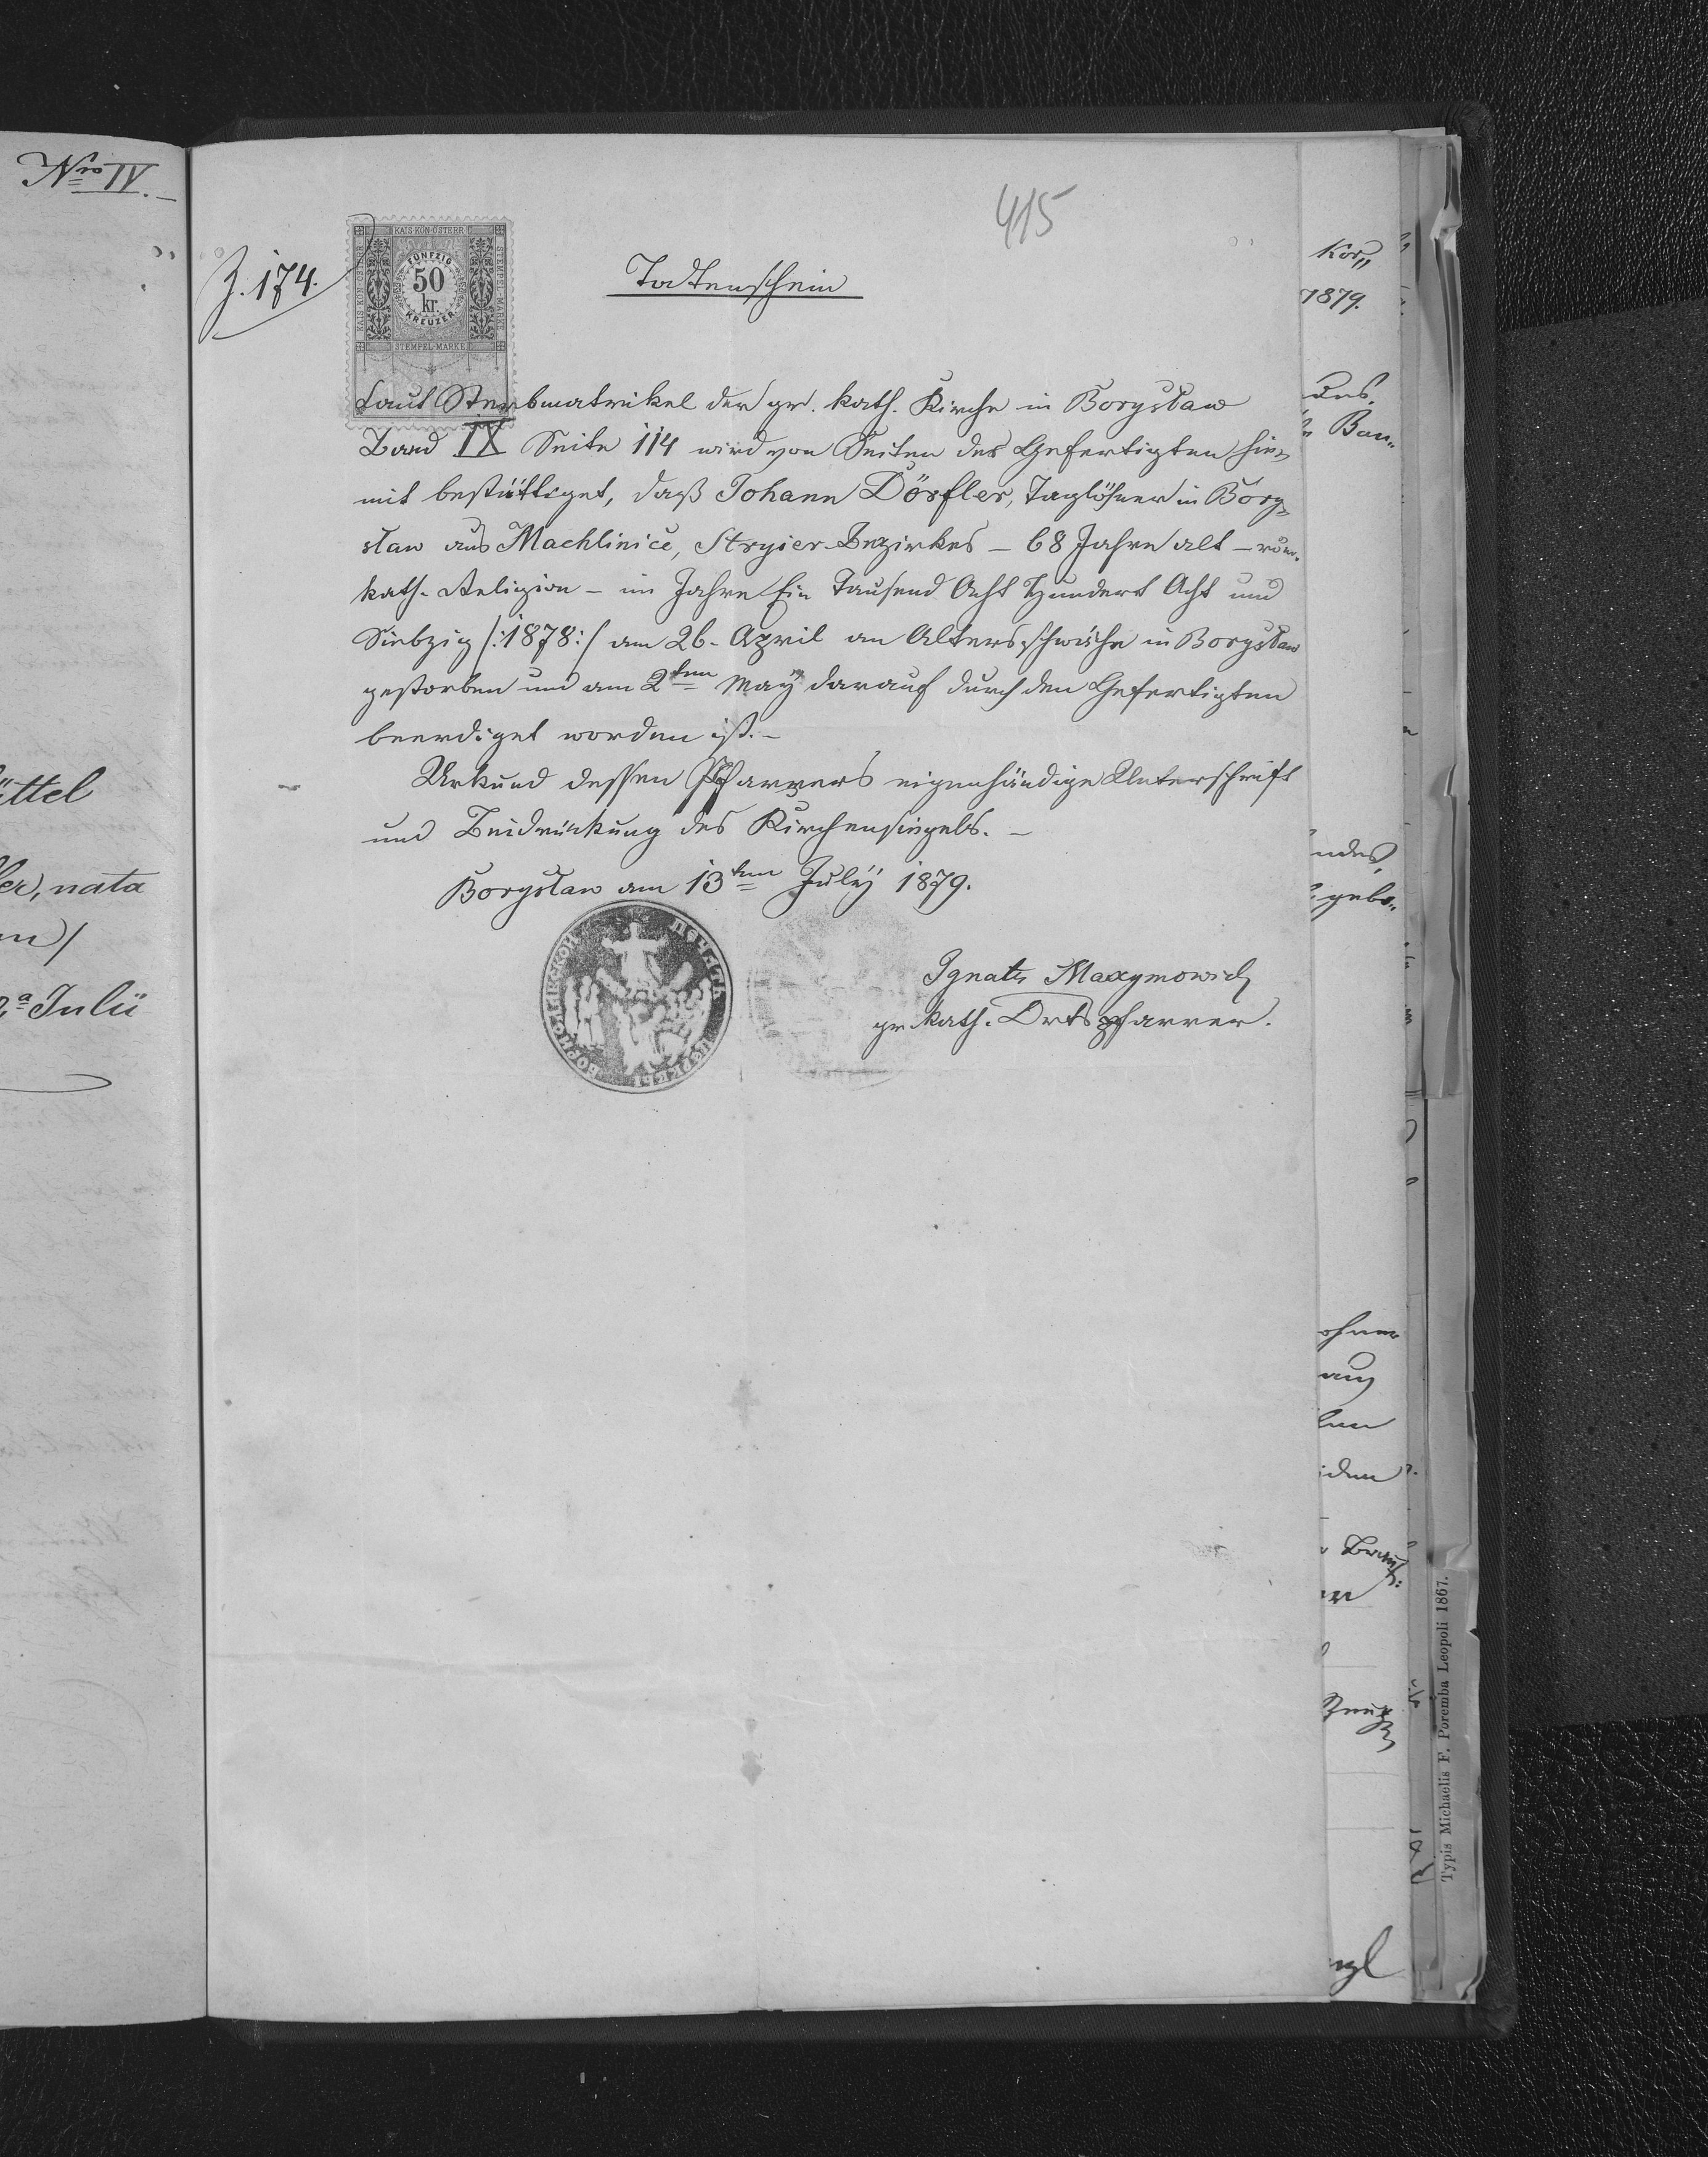 Nro IV.
415
Z. 174.
KAIS·KÖN·ÖSTERR
STEMPEL-MARKE
FÜNFZIG
50
kr.
KREUZER
STEMPEL-MARKE
Todtenschein
Laut Sterbmatrikel der gr. kath. Kirche in Borysław
Band IX Seite 114 wird von Seiten des Gefertigten hie=
mit bestättiget, daß Johann Dörfler, Taglöhner in Bory=
sław aus Machlinice, Stryier-Bezirkes – 68 Jahre alt – röm.
kath. Religion – im Jahre Ein Tausend Acht Hundert Acht und
Siebzig /:1878:/ am 26. April an Altersschwäche in Borysław
gestorben und am 2ten Maÿ darauf durch den Gefertigten
beerdiget worden ist. –
Urkund dessen Pfarrers eigenhändige Unterschrift
und Beidrückung des Kirchensiegels. –
Borysław am 13ten Julÿ 1879.
ПЕЧАТЬ ЦЕРКВЫ
Ignatz Maxymowicz
gr. kath. Ortspfarrer.
üttel
ler, nata
a Julii
Kor„
1879.
des,
Bau„
ndes,
gebo„
ohner
iden
Typis Michaelis F. Poremba Leopoli 1867.